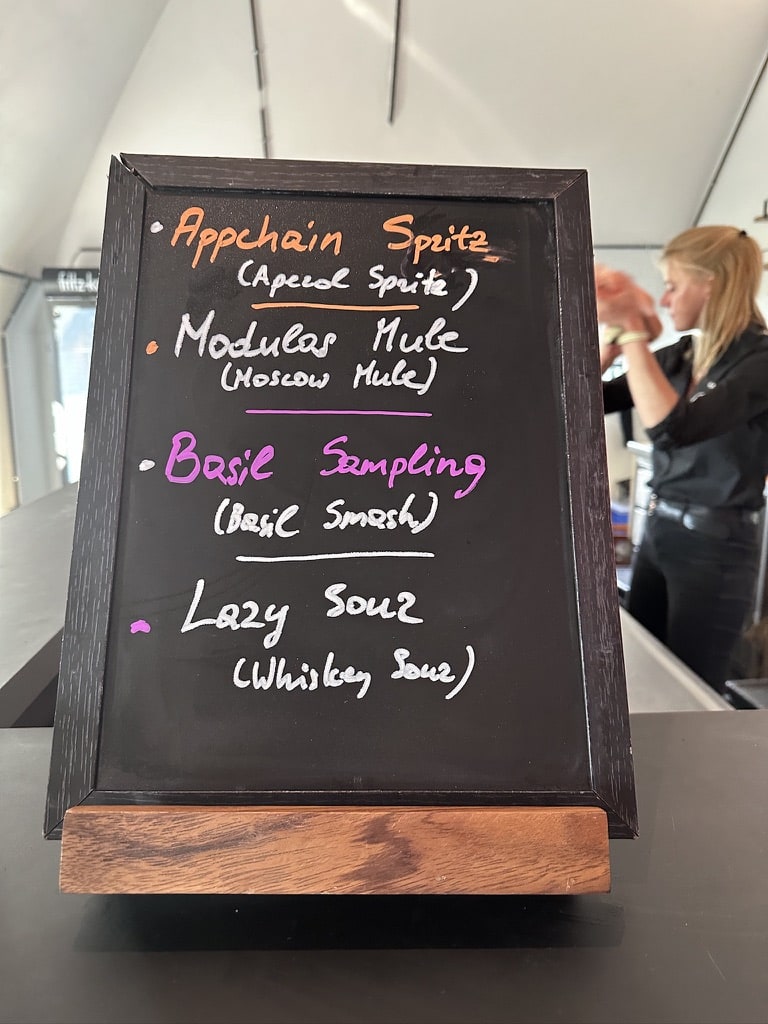 fritz-k
Appchain Spritz
(Aperol Spritz)
Modular Mule
(Moscow Mule)
Basil Sampling
(Basil Smash)
Lazy Sour
(Whiskey Sour)